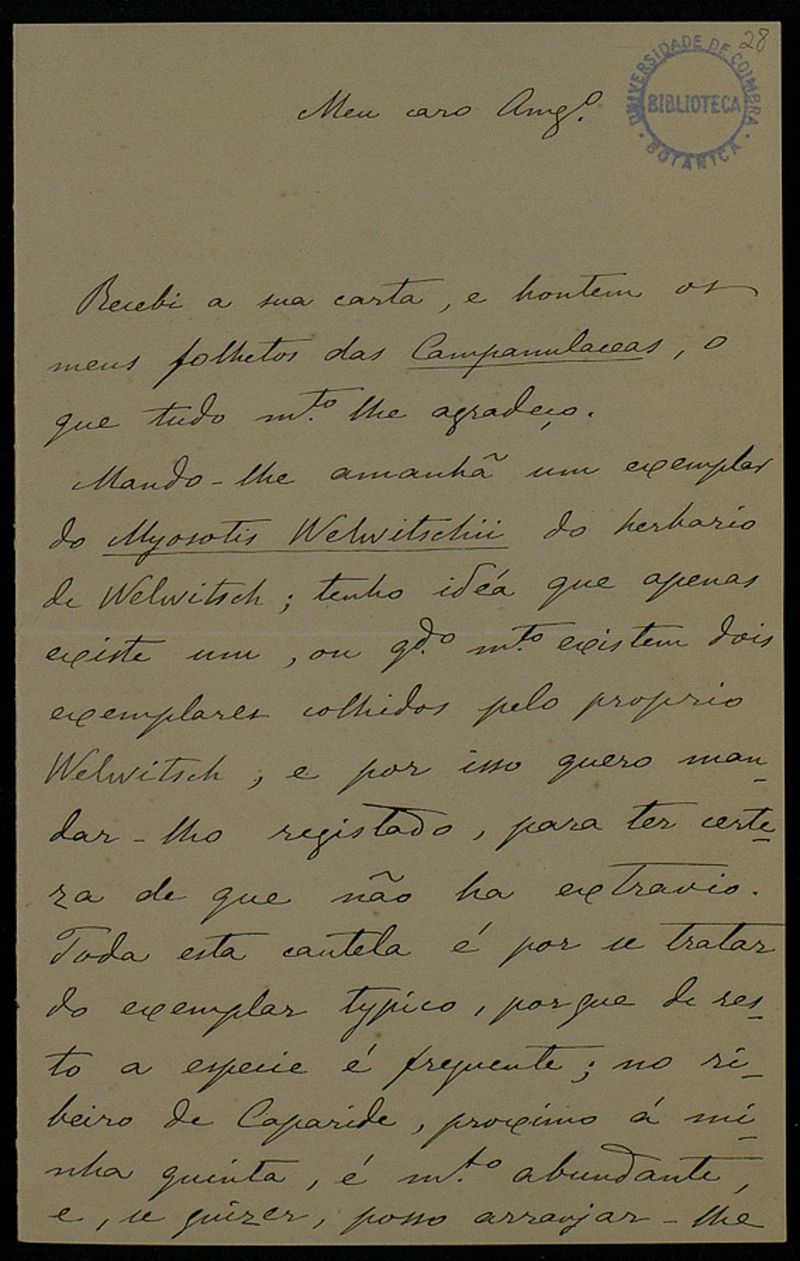 28
UNIVERSIDADE DE COIMBRA
BIBLIOTECA
BOTANICA
Meu caro Amg.º
Recebi a sua carta, e hontem os
meus folhetos das Campanulaceas, o
que tudo m.to lhe agradeço.
Mando-lhe amanhã um exemplar
do Myosotis Welwitschii do herbario
de Welwitsch; tenho idéa que apenas
existe um, ou qd.º m.to existem dois
exemplares colhidos pelo proprio
Welwitsch, e por isso quero man-
dar-lho registado, para ter certe-
za de que não ha extravio.
Toda esta cautela é por se tratar
do exemplar typico, porque de res-
to a especie é frequente; no ri-
beiro de Caparide, proximo á mi-
nha quinta, é m.to abundante,
e, se quizer, posso arranjar-lhe